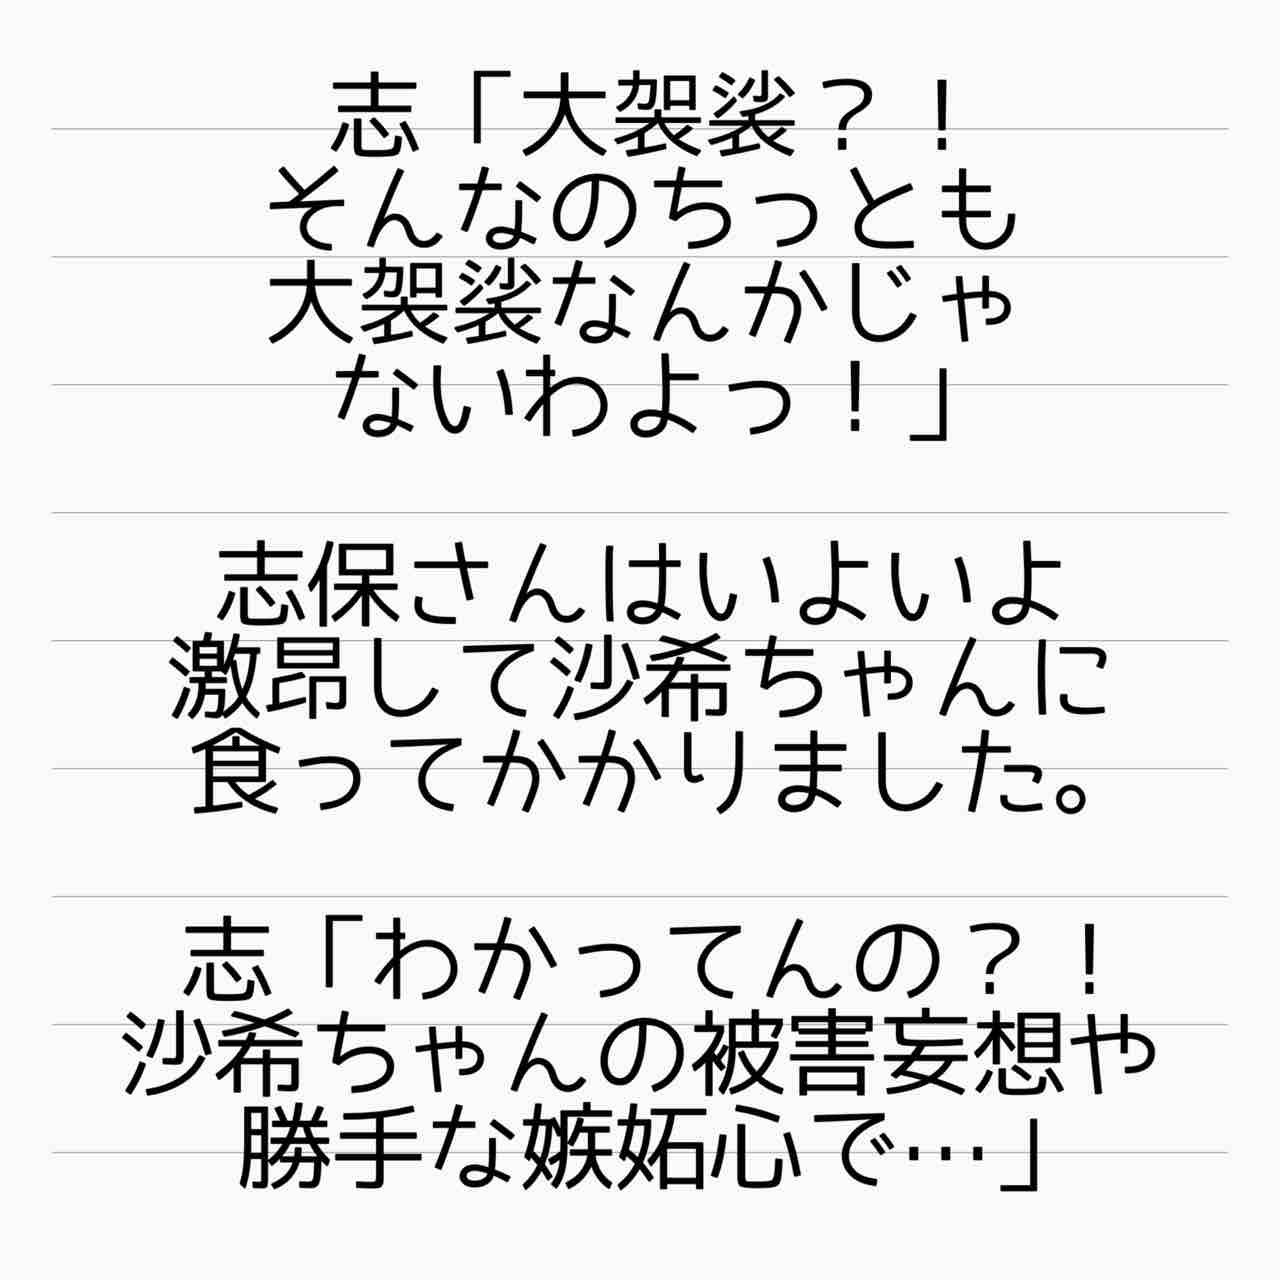 志「大袈裟？！
そんなのちっとも
大袈裟なんかじゃ
ないわよっ！」
志保さんはいよいよ
激昂して沙希ちゃんに
食ってかかりました。
志「わかってんの？！
沙希ちゃんの被害妄想や
勝手な嫉妬心で…」